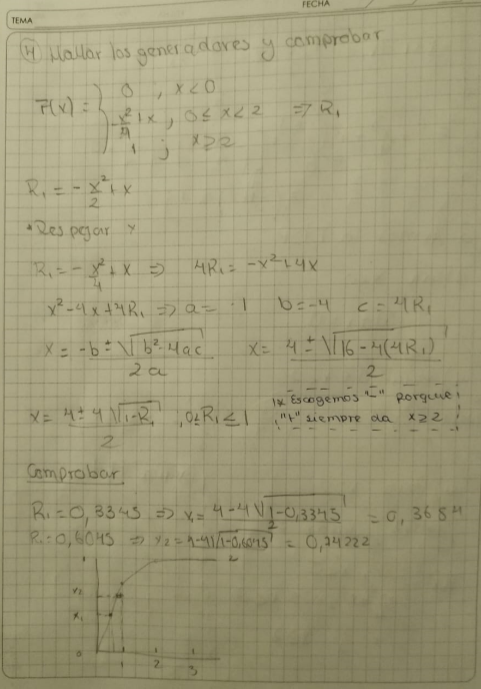 FECHA
TEMA
4) Hallar los generadores y comprobar
F(x) = { 0 , x < 0
-x²/4 + x , 0 ≤ x < 2 ⇒ R₁
1 ; x ≥ 2
R₁ = -x²/2 + x
*Despejar x
R₁ = -x²/4 + x ⇒ 4R₁ = -x² + 4x
x² - 4x + 4R₁ ⇒ a = 1 b = -4 c = 4R₁
x = (-b ± √(b² - 4ac))/2a x = (4 ± √(16 - 4(4R₁)))/2
x = (4 ± 4√(1-R₁))/2 ; 0 ≤ R₁ ≤ 1
* Escogemos "-" porque
"+" siempre da x ≥ 2
Comprobar
R₁ = 0,3345 ⇒ x₁ = (4 - 4√(1-0,3345))/2 = 0,3684
R₂ = 0,6045 ⇒ x₂ = (4-4√(1-0,6045))/2 = 0,74222
1
x₂
x₁
0
1 2 3